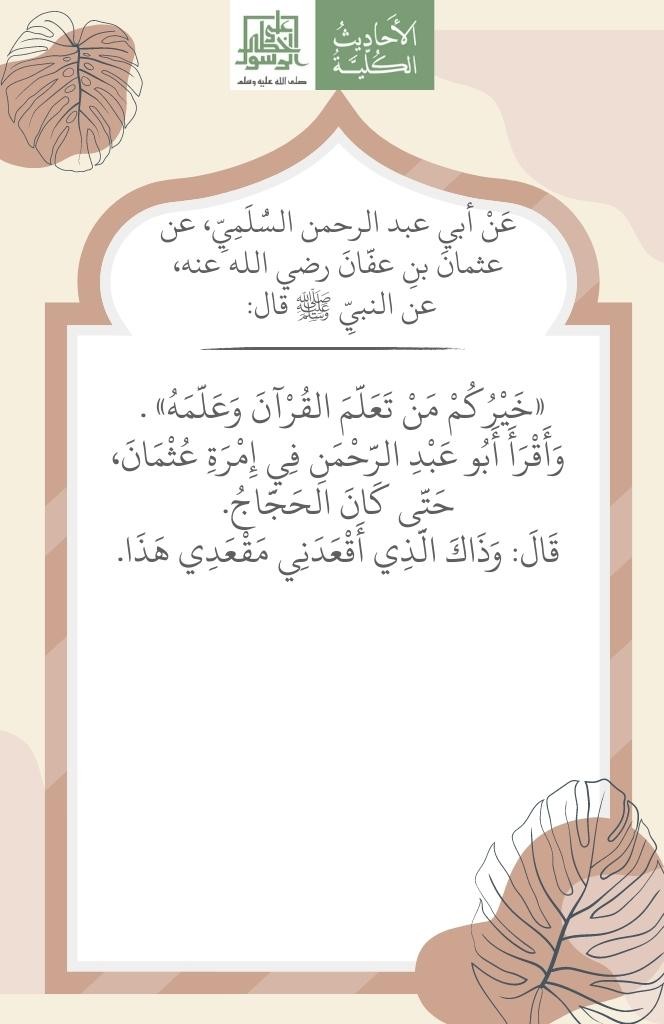 الأَحَادِيثُ
الكُلِّيَّةُ
على
خطى
الرسول
صلى الله عليه وسلم
عَنْ أبي عبد الرحمن السُّلَمِيِّ، عن
عثمانَ بنِ عفّانَ رضي الله عنه،
عن النبيِّ ﷺ قال:
«خَيْرُكُمْ مَنْ تَعَلّمَ القُرْآنَ وَعَلّمَهُ» .
وَأَقْرَأَ أَبُو عَبْدِ الرّحْمَنِ فِي إِمْرَةِ عُثْمَانَ،
حَتّى كَانَ الحَجّاجُ.
قَالَ: وَذَاكَ الّذِي أَقْعَدَنِي مَقْعَدِي هَذَا.